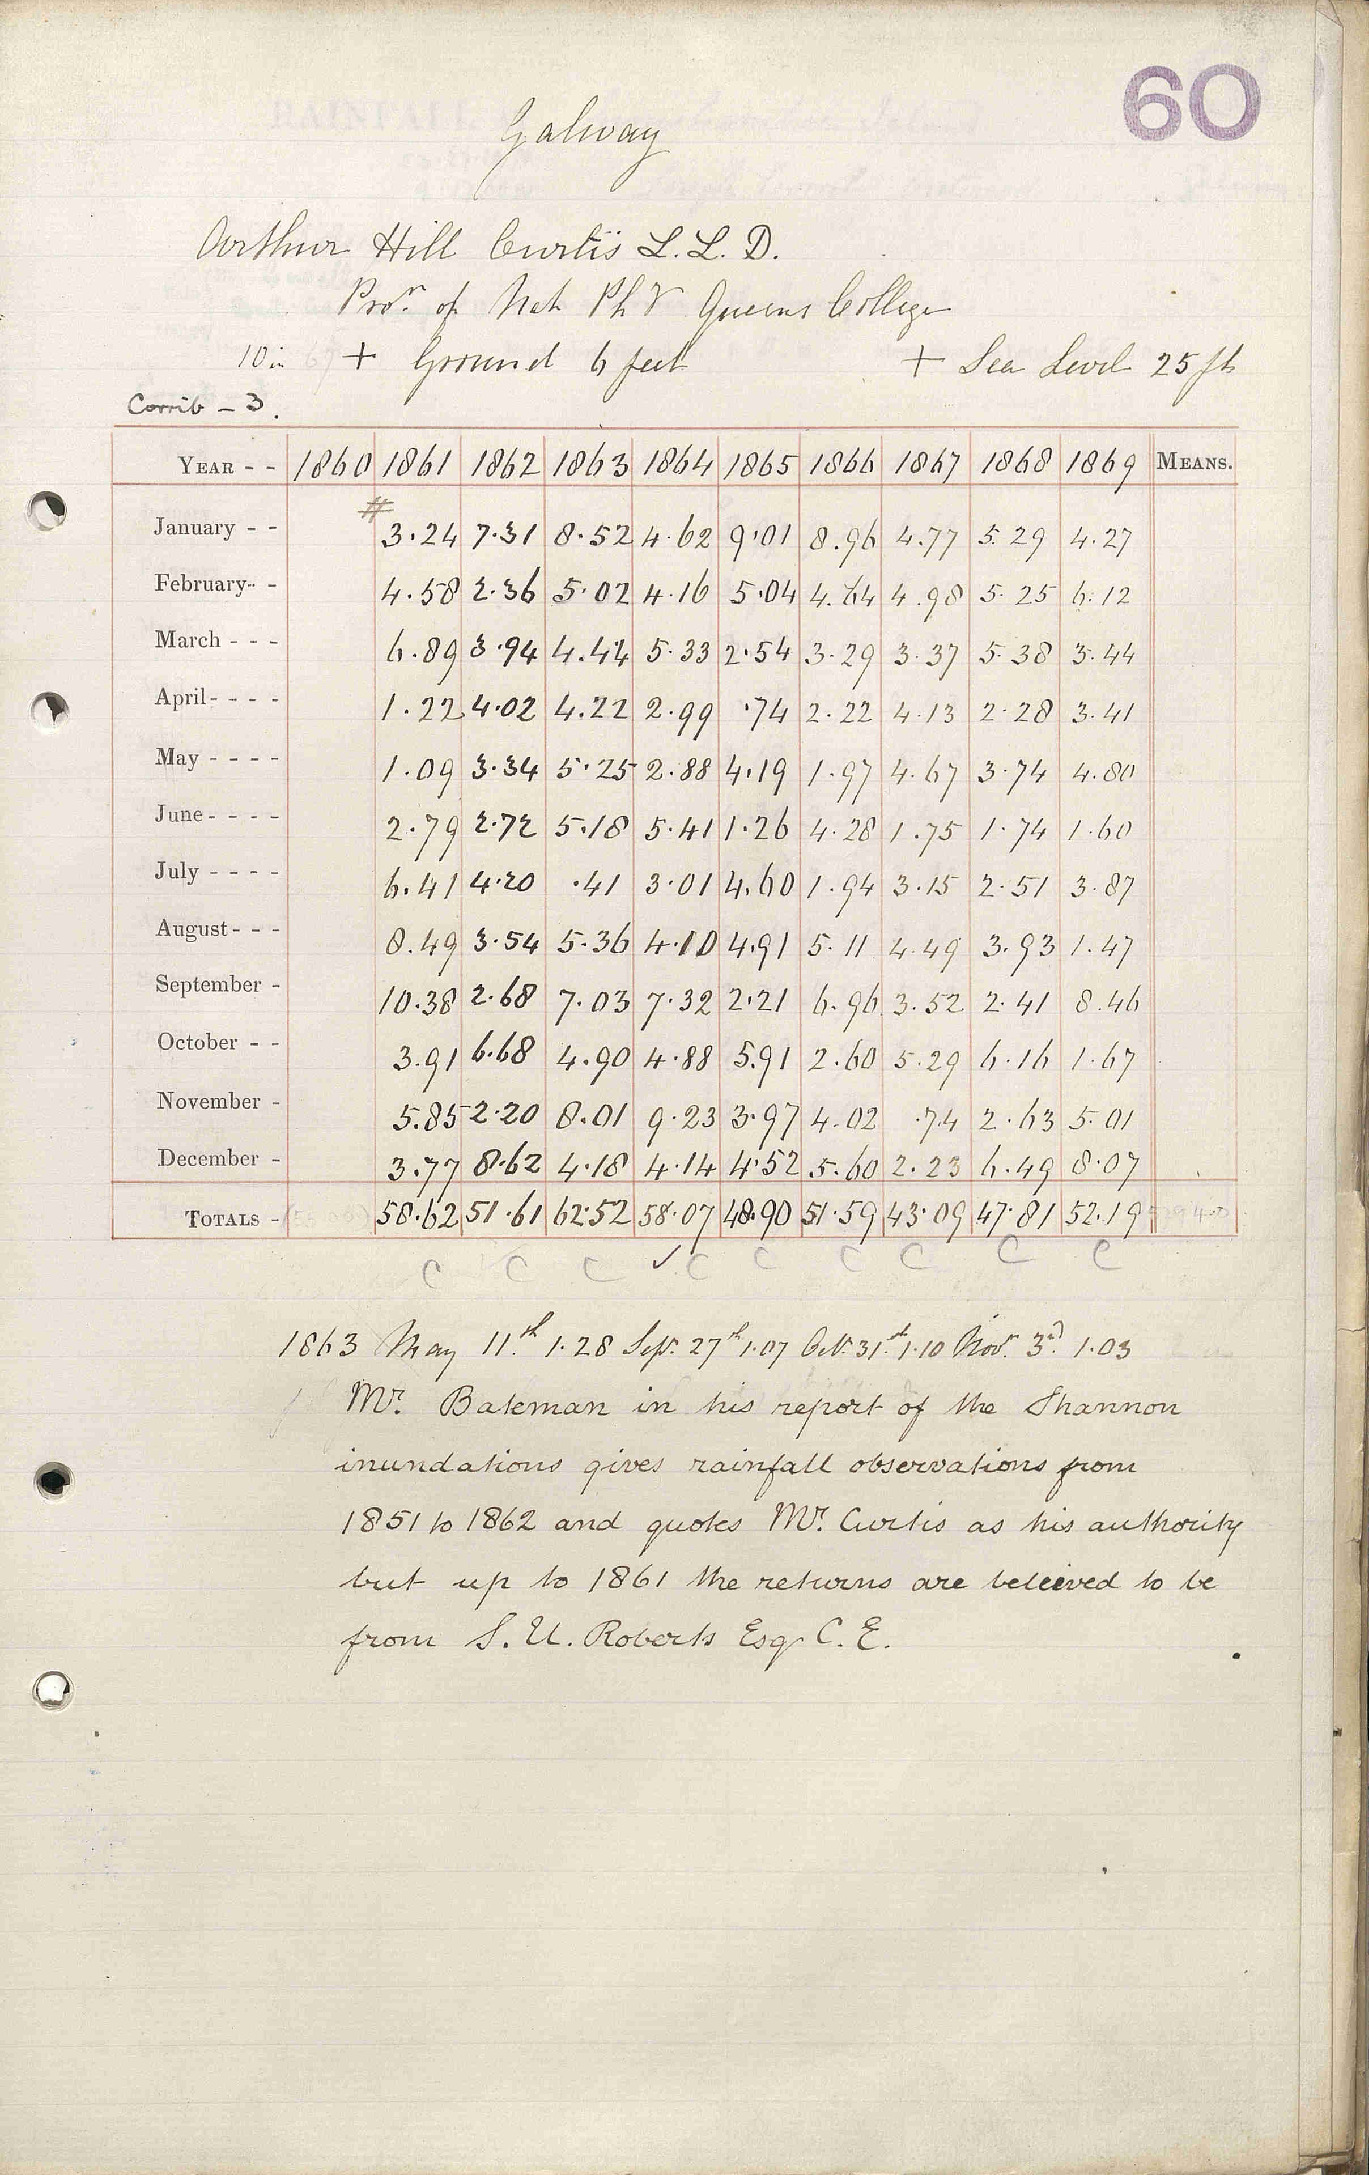 60
Galway
Arthur Hill Curtis L.L.D.
Profr. of Nat Phy Queens College
10 in + Ground 6 feet + Sea Level 25 ft
Corrib - 3.
YEAR - - 1860 1861 1862 1863 1864 1865 1866 1867 1868 1869 MEANS.
#
January - - 3.24 7.31 8.52 4.62 9.01 8.96 4.77 5.29 4.27
February - - 4.58 2.36 5.02 4.16 5.04 4.64 4.98 5.25 6.12
March - - - 6.89 3.94 4.44 5.33 2.54 3.29 3.37 5.38 3.44
April - - - - 1.22 4.02 4.22 2.99 .74 2.22 4.13 2.28 3.41
May - - - - 1.09 3.34 5.25 2.88 4.19 1.97 4.67 3.74 4.80
June - - - - 2.79 2.72 5.18 5.41 1.26 4.28 1.75 1.74 1.60
July - - - - 6.41 4.20 .41 3.01 4.60 1.94 3.15 2.51 3.87
August - - - 8.49 3.54 5.36 4.10 4.91 5.11 4.49 3.93 1.47
September - 10.38 2.68 7.03 7.32 2.21 6.96 3.52 2.41 8.46
October - - 3.91 6.68 4.90 4.88 5.91 2.60 5.29 6.16 1.67
November - 5.85 2.20 8.01 9.23 3.97 4.02 .74 2.63 5.01
December - 3.77 8.62 4.18 4.14 4.52 5.60 2.23 6.49 8.07
TOTALS - 58.62 51.61 62.52 58.07 48.90 51.59 43.09 47.81 52.19
C C C ✓ C C C C C C
1863 May 11th 1.28 Sep. 27th 1.07 Oct. 31st 1.10 Nov. 3d. 1.03
Mr. Bateman in his report of the Shannon
inundations gives rainfall observations from
1851 to 1862 and quotes Mr. Curtis as his authority
but up to 1861 the returns are beleived to be
from S. U. Roberts Esqr C. E.